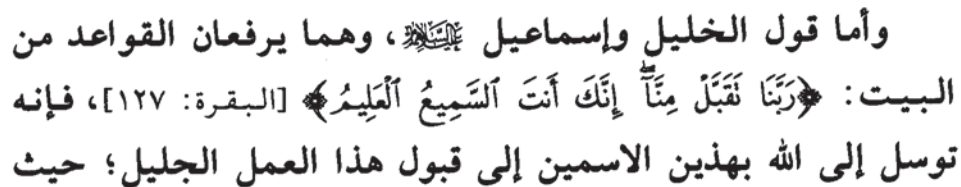 وأما قول الخليل وإسماعيل عليهما السلام، وهما يرفعان القواعد من
البيت: ﴿رَبَّنَا تَقَبَّلْ مِنَّآۖ إِنَّكَ أَنتَ ٱلسَّمِيعُ ٱلْعَلِيمُ﴾ [البقرة: ١٢٧]، فإنه
توسل إلى الله بهذين الاسمين إلى قبول هذا العمل الجليل؛ حيث